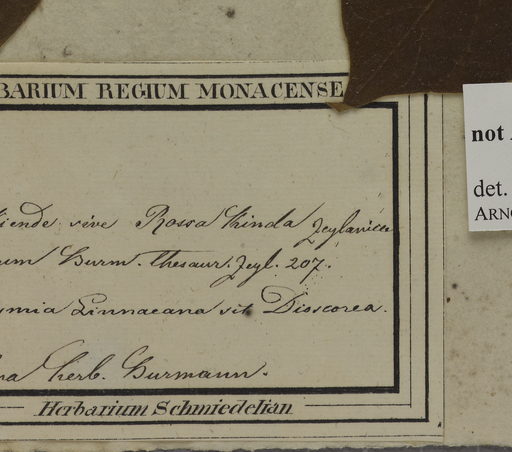 BARIUM REGIUM MONACENSE
iende sive Rossa Kinda Zeylanice
um Burm. Thesaur. Zeyl. 207.
ymia Linnaeana sit Dioscorea.
na herb. Burmann.
Herbarium Schmiedelian
not
det.
ARNO